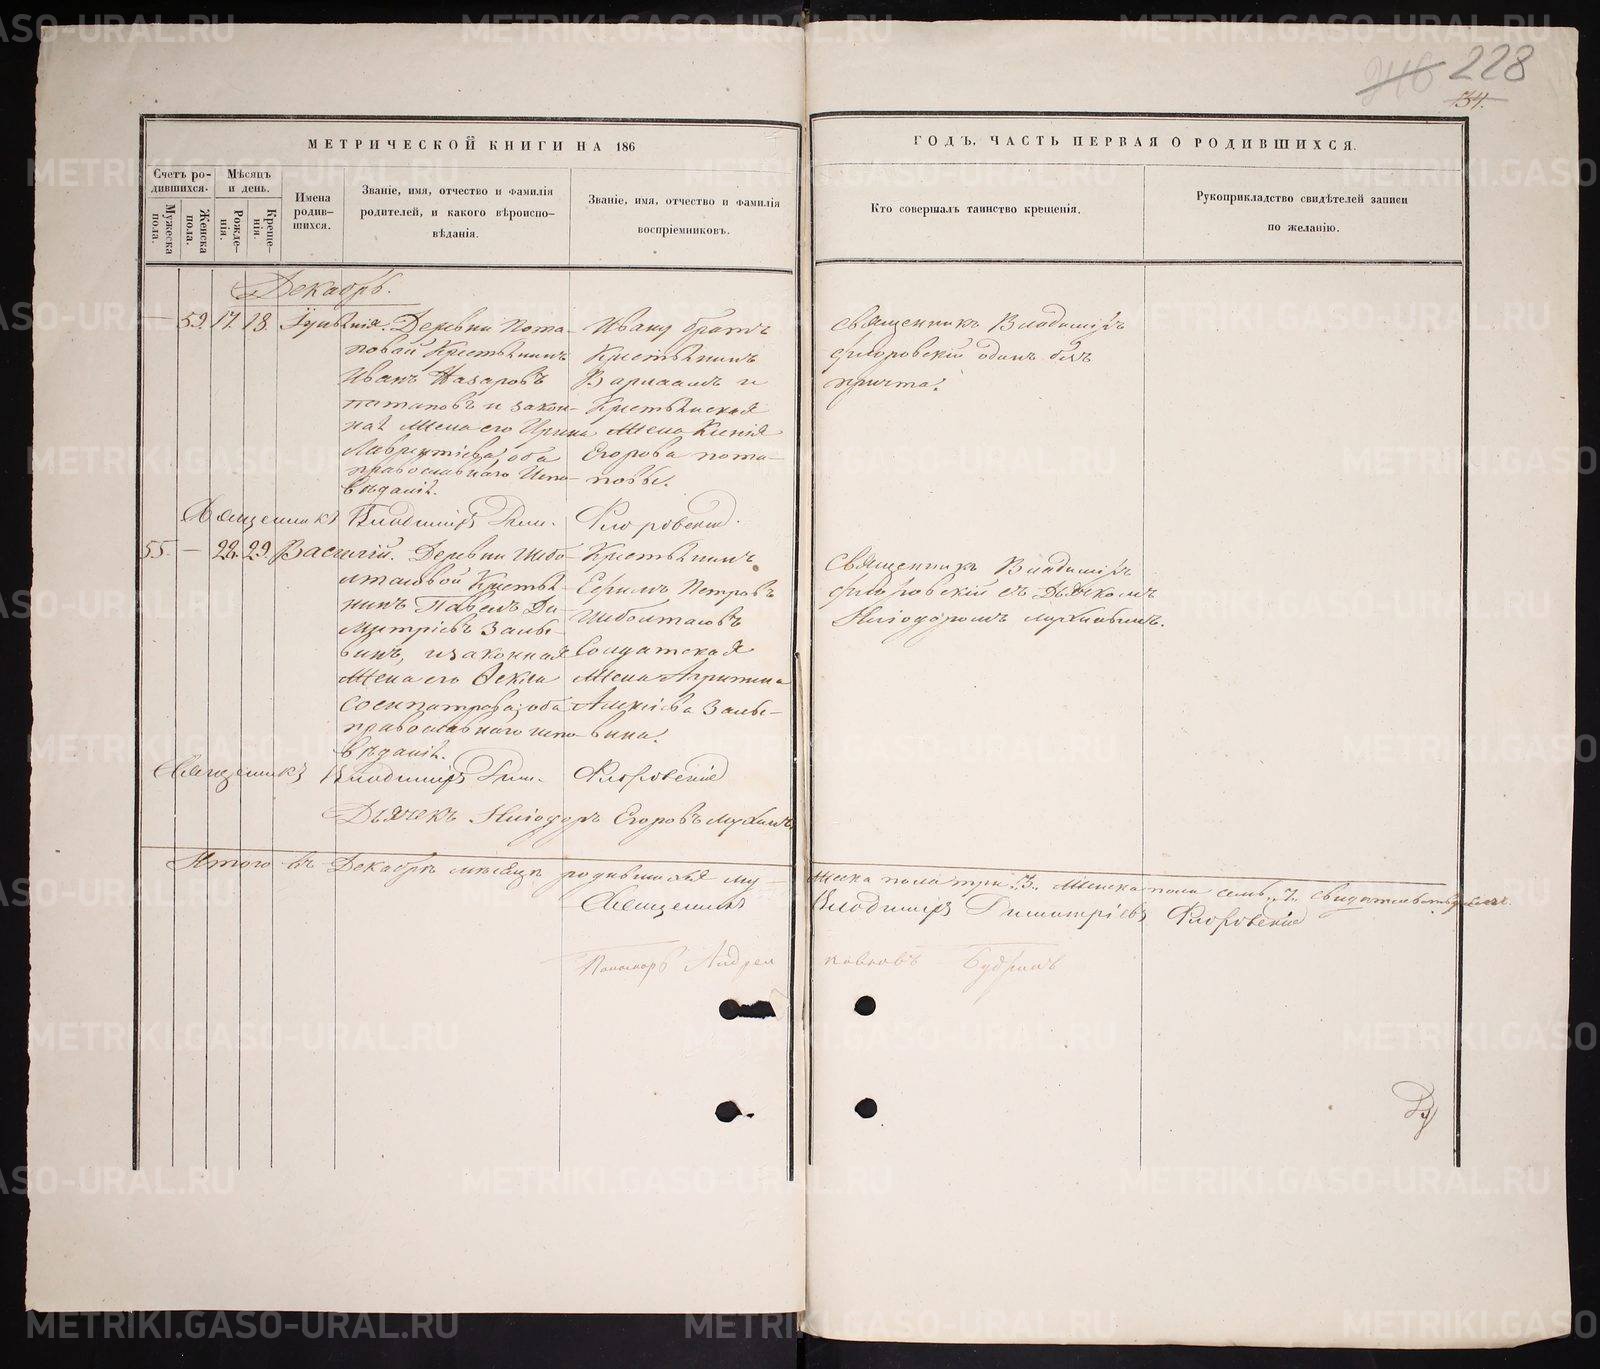 228
34.
МЕТРИЧЕСКОЙ КНИГИ НА 186
ГОДЪ, ЧАСТЬ ПЕРВАЯ О РОДИВШИХСЯ.
Счетъ ро-
дившихся.
Мѣсяцъ
и день.
Мужеска
пола.
Женска
пола.
Рожде-
нія.
Креще-
нія.
Имена
родив-
шихся.
Званіе, имя, отчество и фамилія
родителей, и какого вѣроиспо-
вѣданія.
Званіе, имя, отчество и фамилія
воспріемниковъ.
Кто совершалъ таинство крещенія.
Рукоприкладство свидѣтелей записи
по желанію.
Декабрь.
— 59. 17. 18.
Деревни Пота-
повой Крестьянинъ
Иванъ Назаровъ
Потаповъ и закон-
ная жена его Ирина
Лаврентіева, оба
православнаго испо-
вѣданія.
Ивану братъ
Крестьянинъ
Варлаамъ и
Крестьянская
жена Ксенія
Егорова Пота-
повы.
Священникъ Владиміръ
Флоровскій одинъ безъ
причта.
Священникъ Владиміръ Дим. Флоровскій.
55. — 22. 29. Василій.
Деревни Шибо-
лтасовой Крестья-
нинъ Павелъ Ди-
митріевъ Завь-
ѣ
жена его Ѳекла
Сосипатрова, оба
православнаго испо-
вѣданія.
Крестьянинъ
Ефимъ Петровъ
Солдатская
жена Агрипина
Алексіева
Священникъ Владиміръ
Флоровскій съ Дьячкомъ
Иліодоромъ Мухинымъ.
Священникъ Владиміръ Дим. Флоровскій
Дьячекъ Иліодоръ Егоровъ Мухинъ
Итого въ Декабрѣ мѣсяцѣ родившихся му-
жеска пола три „3„ женска пола семь „7„ свидѣтельствуемъ.
Священникъ Владиміръ Димитріевъ Флоровскій
Пономарь Андрей
Будринъ